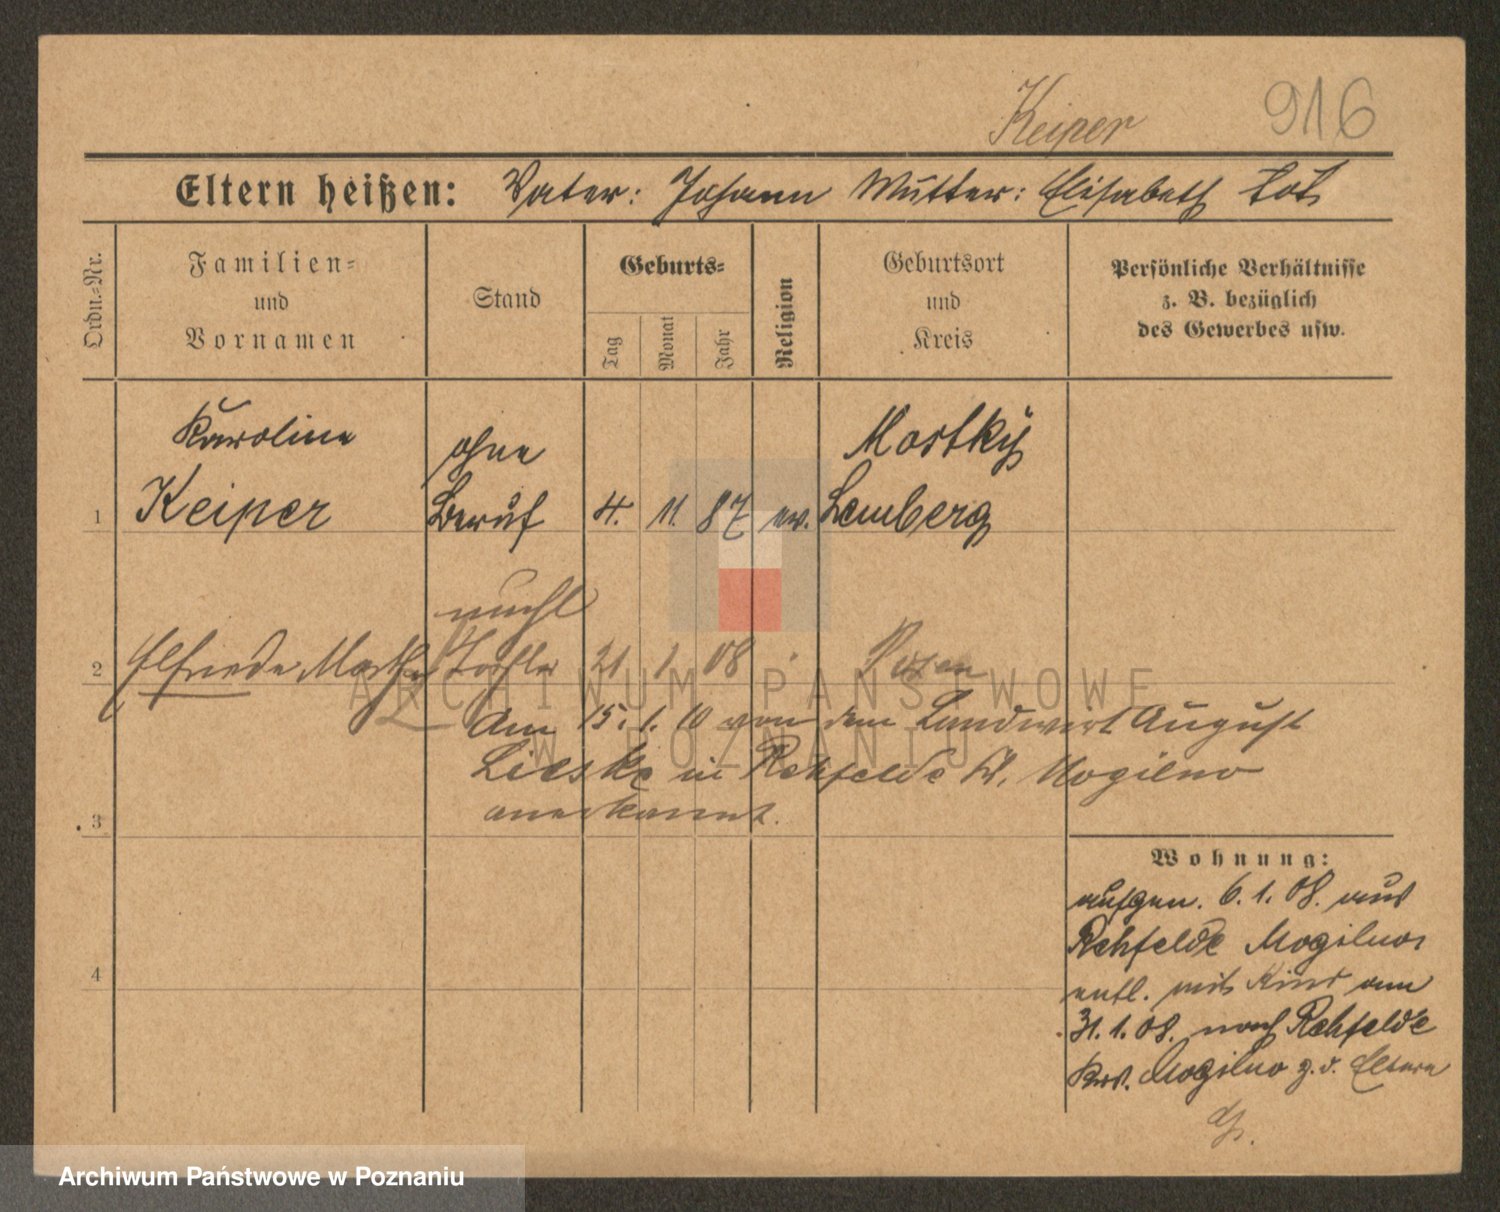 Keiper 916
Eltern heißen: Vater: Johann Mutter: Elisabeth Löb
Ordn.-Nr.
Familien-
und
Vornamen
Stand
Geburts-
Tag
Monat
Jahr
Religion
Geburtsort
und
Kreis
Persönliche Verhältnisse
z. B. bezüglich
des Gewerbes usw.
Karoline
Keiper
ohne
Beruf
1
4. 11. 87 ev.
Mostky
Lemberg
unehl
2 Elfriede Martha Tochter 21 1 08 Posen
Am 15. 1. 10 von dem Landwirt August
Lieske in Rehfelde Kr. Mogilno
anerkannt.
3
4
Wohnung:
aufgen. 6. 1. 08. aus
Rehfelde Mogilno
entl. mit Kind am
31. 1. 08. nach Rehfelde
Krs. Mogilno z. d. Eltern
ARCHIWUM PAŃSTWOWE
W POZNANIU
Archiwum Państwowe w Poznaniu